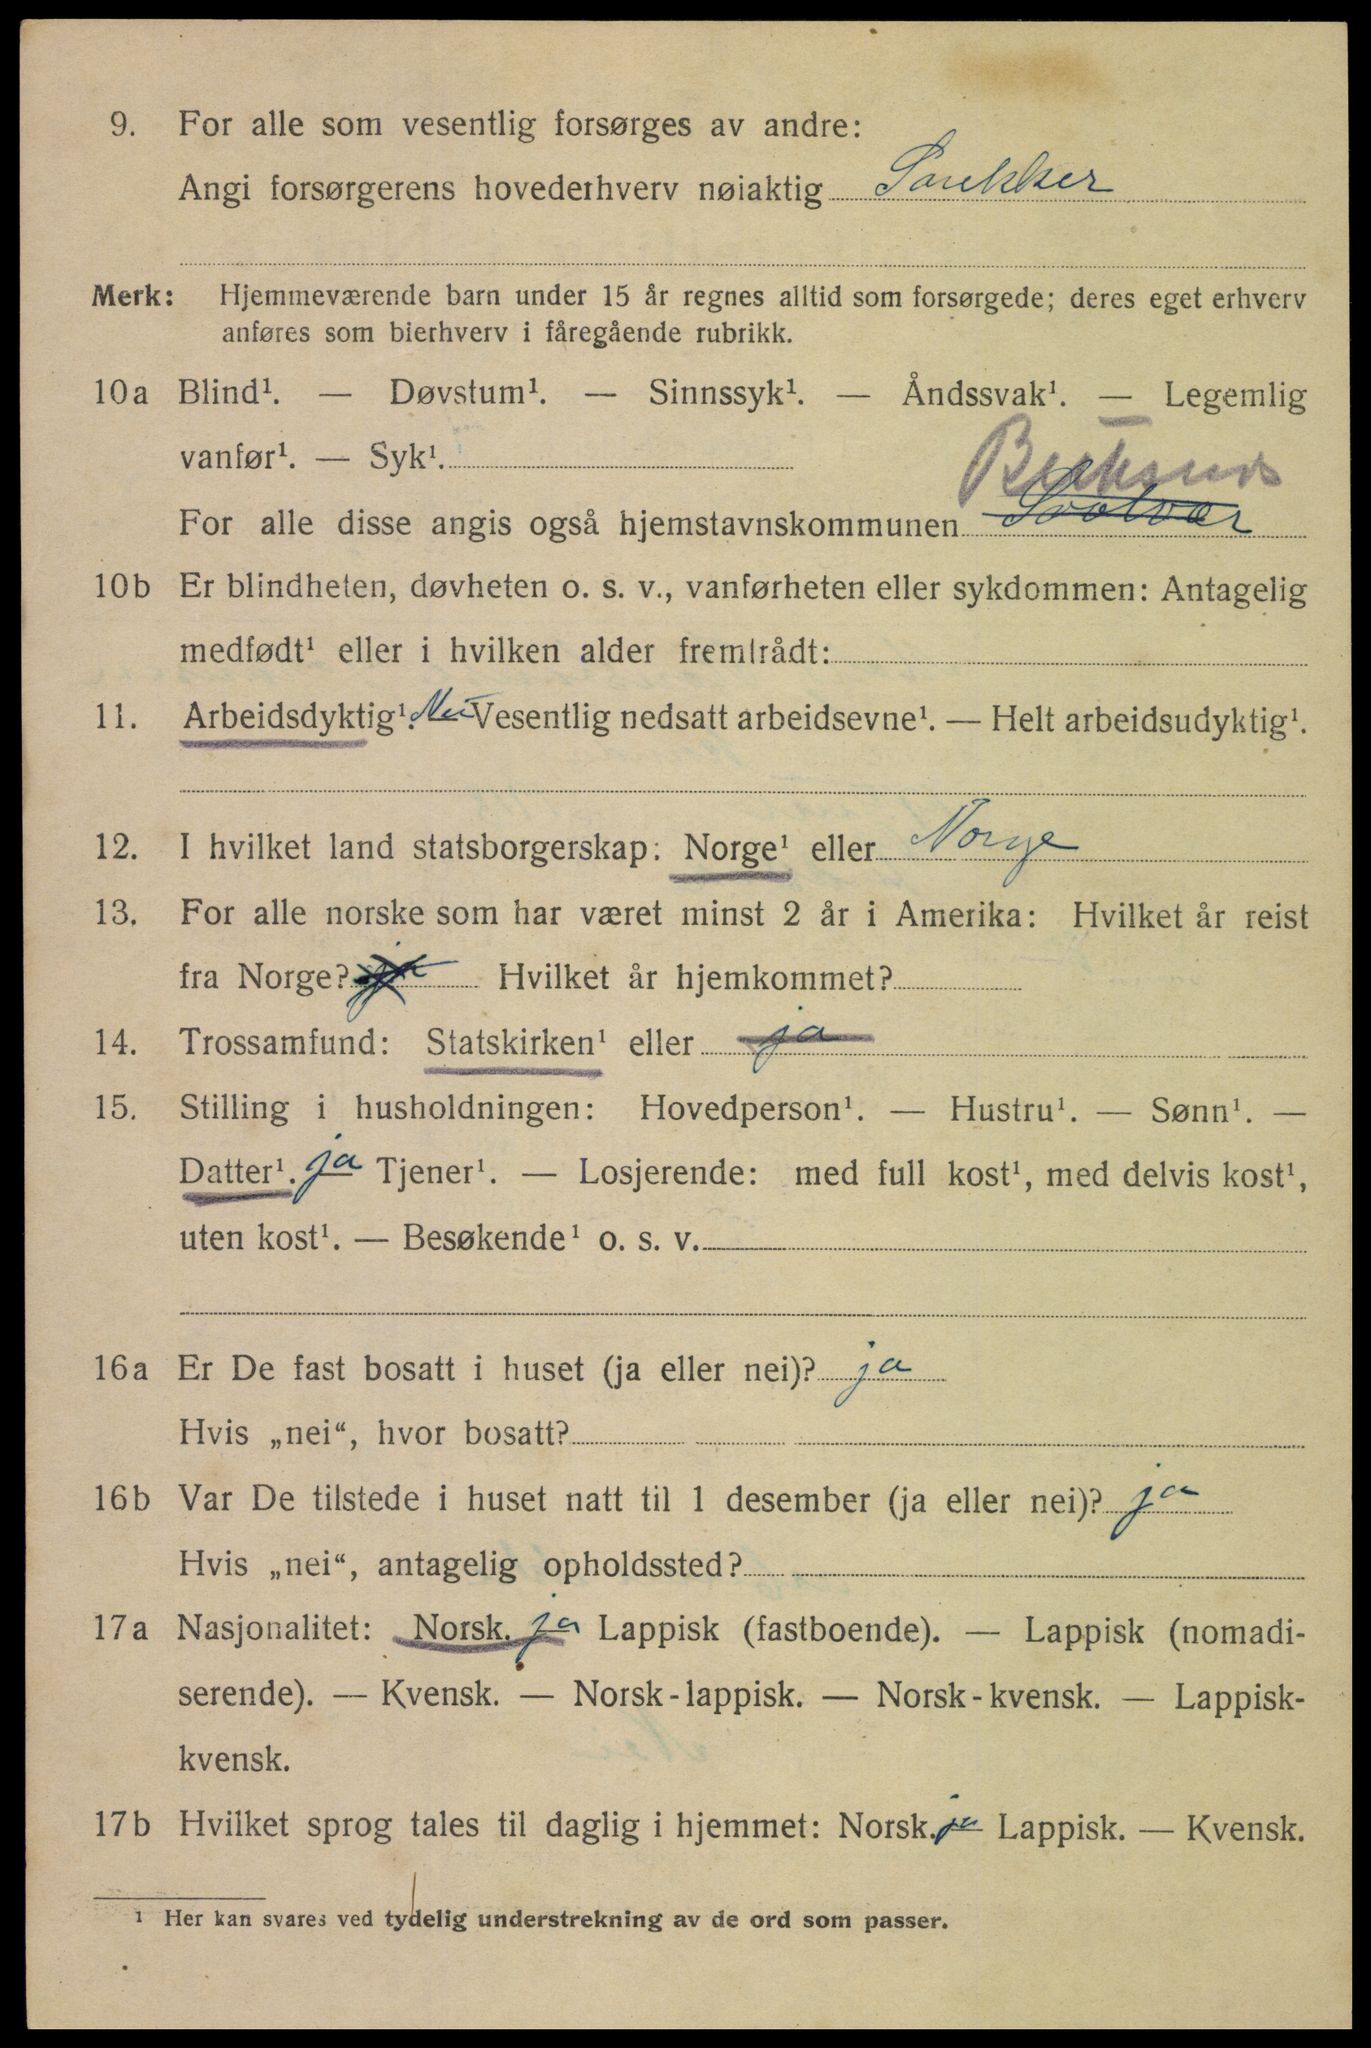 9. For alle som vesentlig forsørges av andre:
Angi forsørgerens hovederhverv nøiaktig Snekker
Merk: Hjemmeværende barn under 15 år regnes alltid som forsørgede; deres eget erhverv
anføres som bierhverv i fåregående rubrikk.
10a Blind¹. — Døvstum¹. — Sinnssyk¹. — Åndssvak¹. — Legemlig
vanfør¹. — Syk¹.
For alle disse angis også hjemstavnskommunen Svolvær
10b Er blindheten, døvheten o. s. v., vanførheten eller sykdommen: Antagelig
medfødt¹ eller i hvilken alder fremtrådt:
11. Arbeidsdyktig¹. Nei Vesentlig nedsatt arbeidsevne¹. — Helt arbeidsudyktig¹.
12. I hvilket land statsborgerskap: Norge¹ eller Norge
13. For alle norske som har været minst 2 år i Amerika: Hvilket år reist
fra Norge? ja Hvilket år hjemkommet?
14. Trossamfund: Statskirken¹ eller ja
15. Stilling i husholdningen: Hovedperson¹. — Hustru¹. — Sønn¹. —
Datter¹. ja Tjener¹. — Losjerende: med full kost¹, med delvis kost¹,
uten kost¹. — Besøkende¹ o. s. v.
16a Er De fast bosatt i huset (ja eller nei)? ja
Hvis „nei“, hvor bosatt?
16b Var De tilstede i huset natt til 1 desember (ja eller nei)? ja
Hvis „nei“, antagelig opholdssted?
17a Nasjonalitet: Norsk. ja Lappisk (fastboende). — Lappisk (nomadi-
serende). — Kvensk. — Norsk-lappisk. — Norsk-kvensk. — Lappisk-
kvensk.
17b Hvilket sprog tales til daglig i hjemmet: Norsk. ja Lappisk. — Kvensk.
¹ Her kan svares ved tydelig understrekning av de ord som passer.